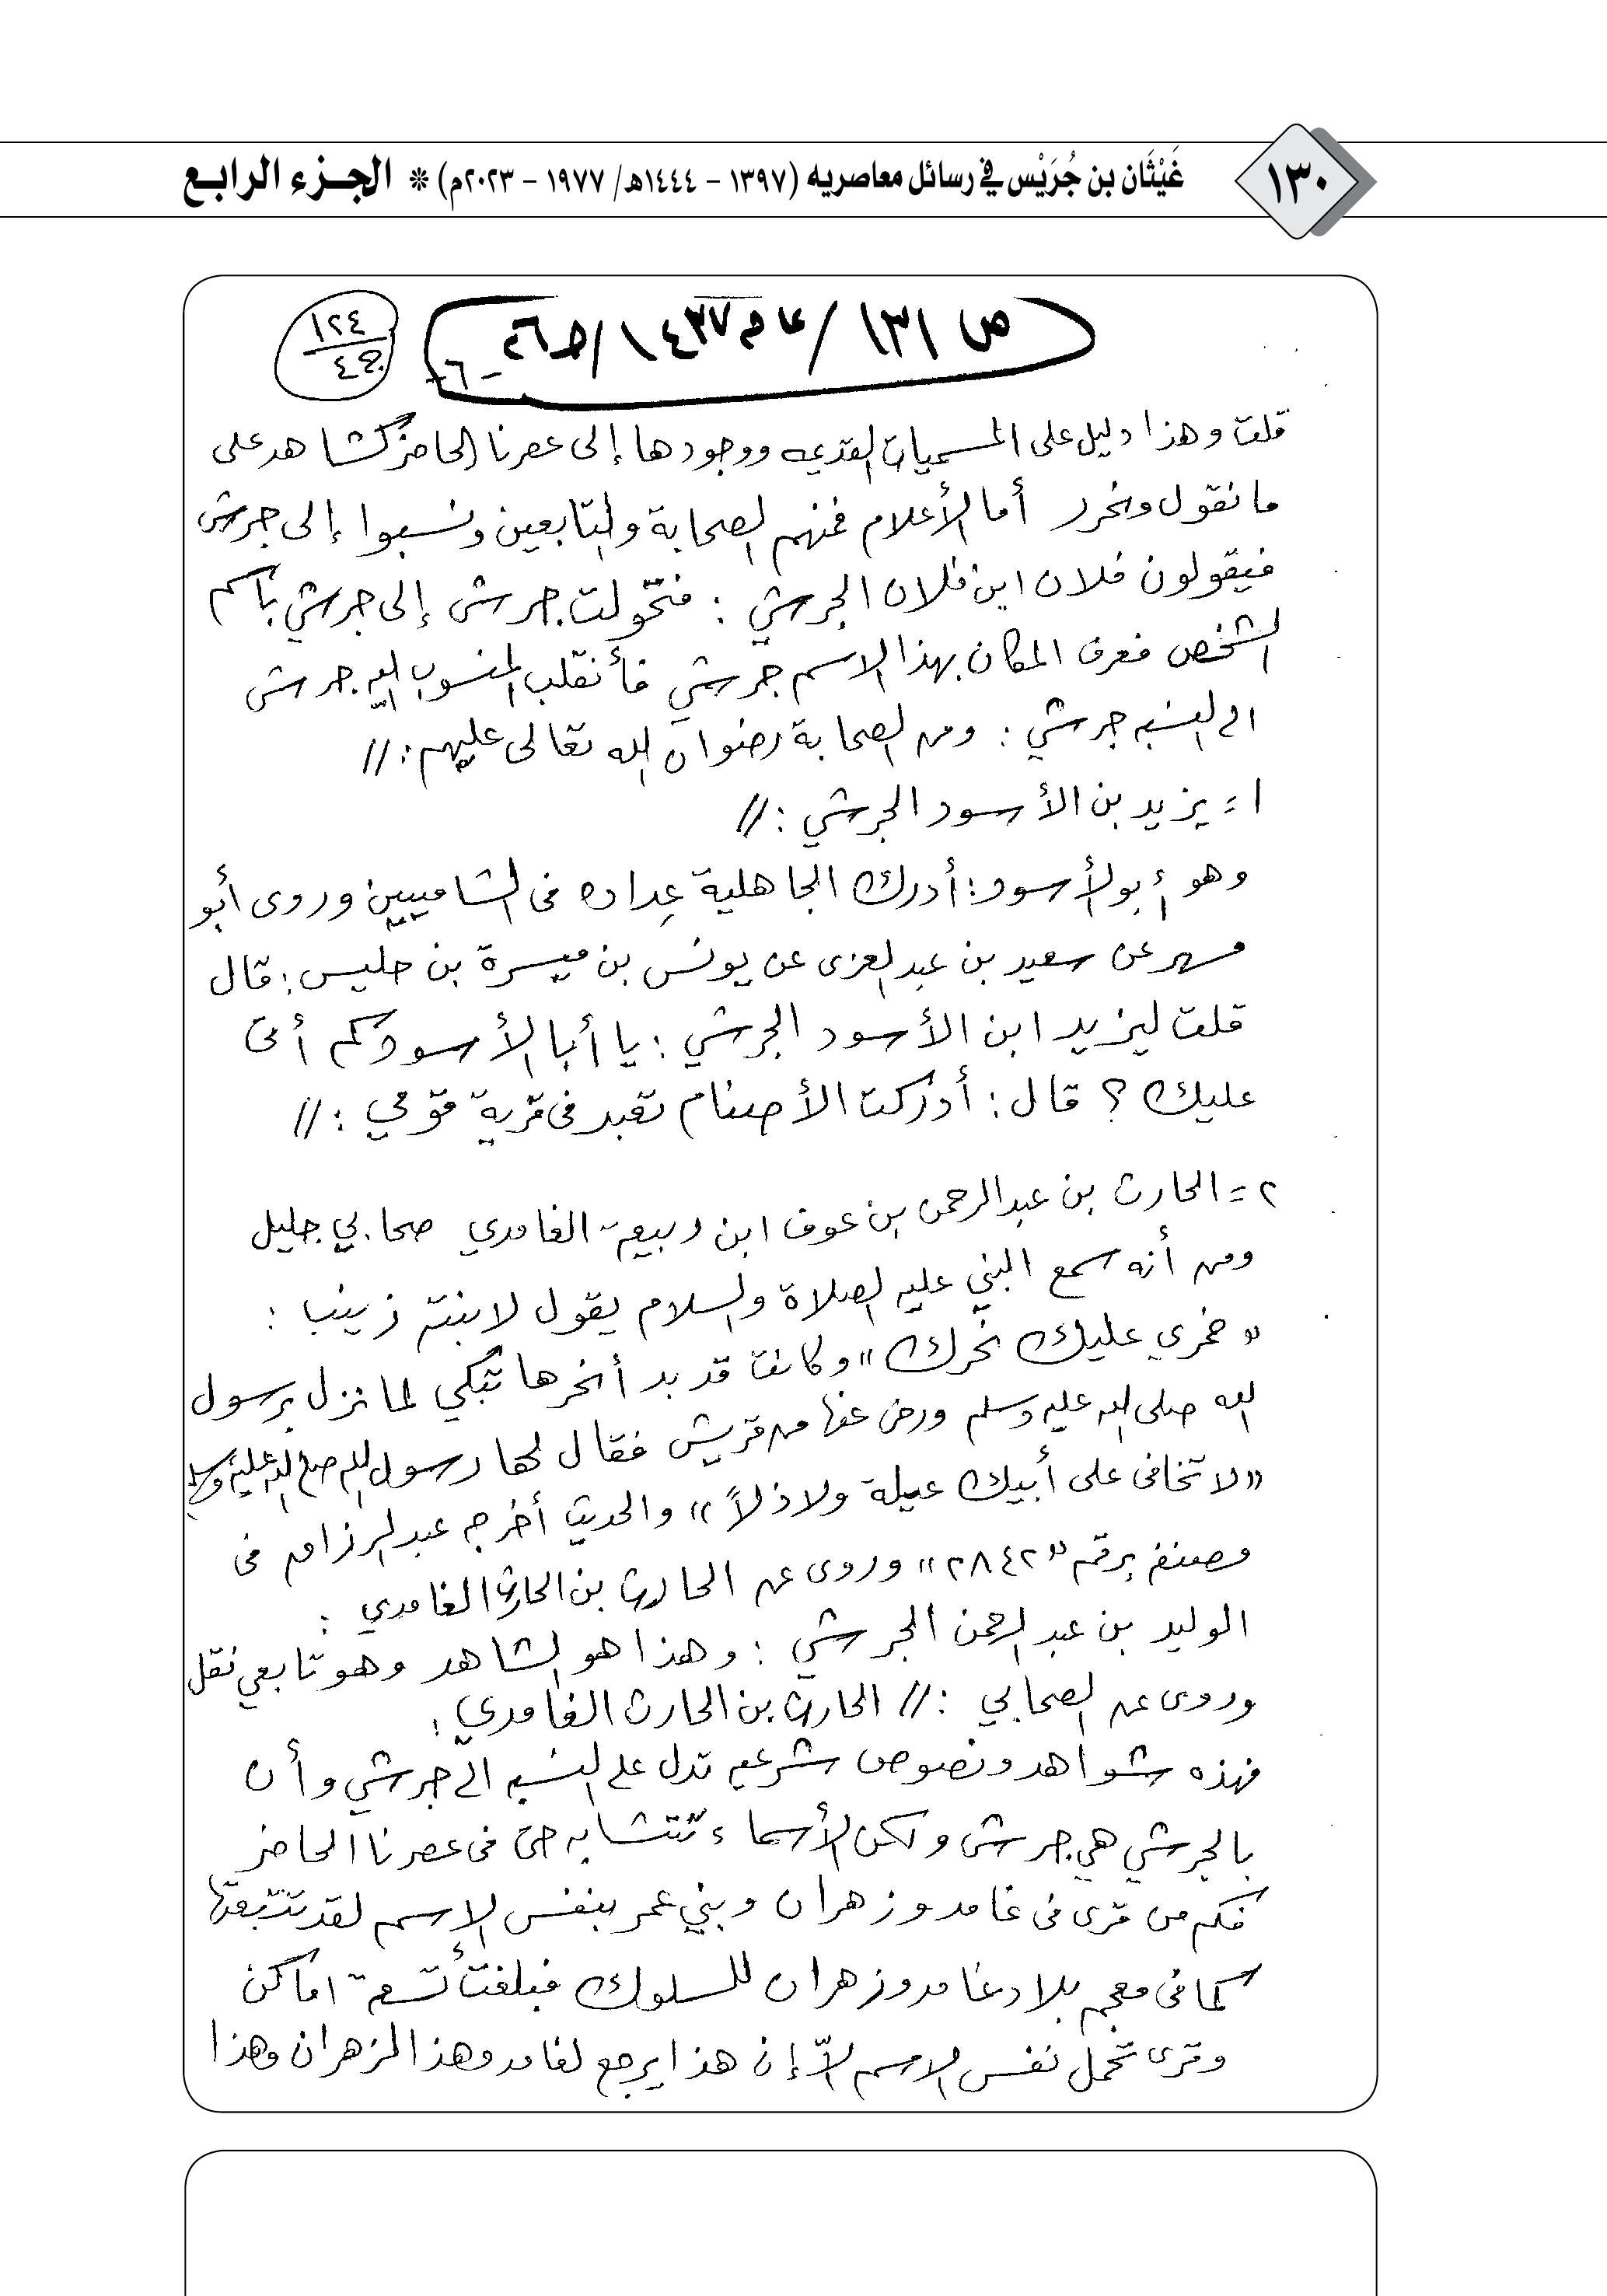 ١٣٠
غَيْثَان بن جُرَيْس في رسائل معاصريه (١٣٩٧ - ١٤٤٤هـ / ١٩٧٧ - ٢٠٢٣م) * الجـزء الرابـع
ص ١٣١ / عام ١٤٣٧ / ج٢٦
-٦-
١٢٤
ج٤
قلت وهذا دليل على المسميات القديمه ووجودها إلى عصرنا الحاضر كشاهد على
ما نقول ونحرر أما الأعلام فمنهم الصحابة والتابعين ونسبوا إلى جرش
فيقولون فلان ابن فلان الجرشي : فتحولت جرش إلى جرشي بأسم
الشخص فعرف المكان بهذا الاسم جرشي فأنقلب المنسوب اليه جرش
الى النسبه جرشي : ومن الصحابة رضوان الله تعالى عليهم : //
١ = يزيد بن الأسود الجرشي : //
وهو أبو الأسود : أدرك الجاهلية عِداده في الشاميين وروى أبو
مسهر عن سعيد بن عبد العزى عن يونس بن ميسرة بن حليس : قال
قلت ليزيد ابن الأسود الجرشي : يا أبا الأسود كم أتى
عليك ؟ قال : أدركت الأصنام تعبد في قرية قومي : //
٢ = الحارث بن عبدالرحمن بن عوف ابن ربيعة الغامدي صحابي جليل
ومن أنه سمع النبي عليه الصلاة والسلام يقول لابنته زينب :
« خمري عليك نحرك » وكانت قد بد أنحرها تبكي لما نزل برسول
الله صلى الله عليه وسلم من قريش فقال لها رسول الله صلى الله عليه وسلم
« لا تخافى على أبيك عيلة ولا ذلاً » والحديث أخرجه عبد الرزاق فى
مصنفه برقم « ٢٨٤٢ » وروى عن الحارث بن الحارث الغامدي :
الوليد بن عبد الرحمن الجرشي : وهذا هو الشاهد وهو تابعي نقل
وروى عن الصحابي : // الحارث بن الحارث الغامدي :
فهذه شواهد ونصوص شرعيه تدل على النسبه الى جرشي وأن
بالجرشي هي جرش ولكن الأسماء تتشابه حتى فى عصرنا الحاضر
فكم من قرى فى غامد وزهران وبني عمر بنفس الإسم لقد تتبعتها
كما فى معجم بلاد غامد وزهران للسلوك فبلغت تسعة اماكن
وقرى تحمل نفس الاسم الاّ إن هذا يرجع لغامد وهذا لزهران وهذا